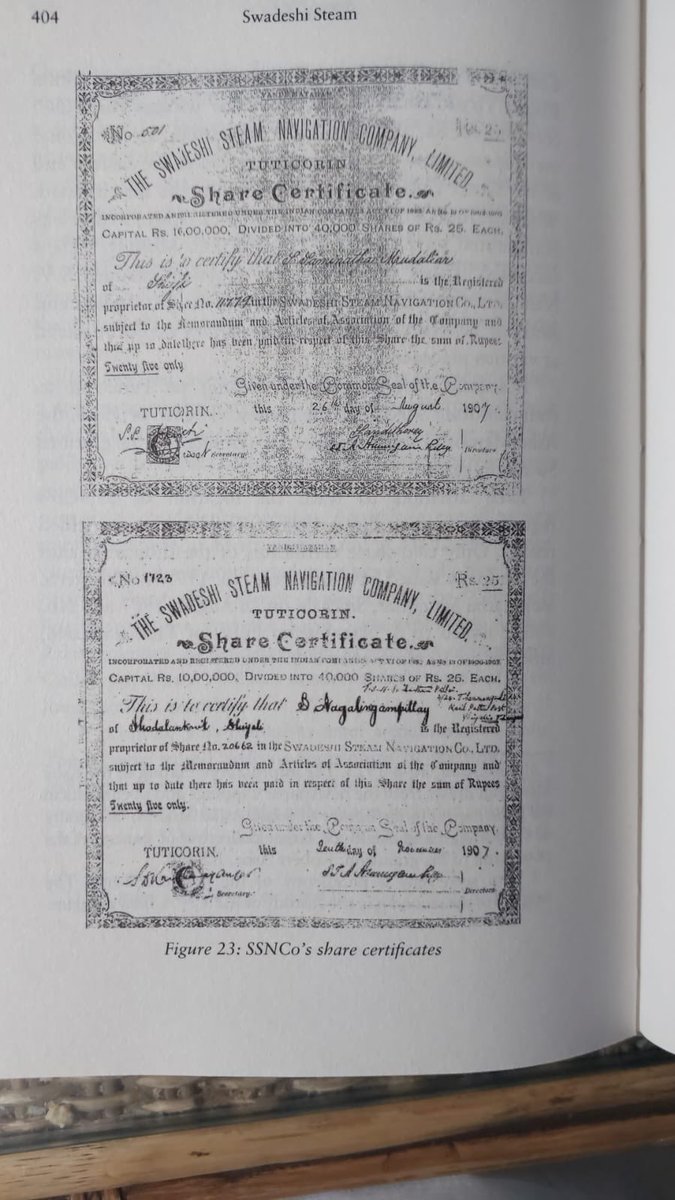 404 Swadeshi Steam
No 501 Rs. 25
THE SWADESHI STEAM NAVIGATION COMPANY, LIMITED.
TUTICORIN
Share Certificate.
UNDER THE INDIAN COMPANIES ACT VI OF
CAPITAL RS. 10,00,000, DIVIDED INTO 40,000 SHARES OF RS. 25. EACH.
This is to certify that S. Saminatha Maudaliar
of Shiyali is the Registered
proprietor of Share No. in the SWADESHI STEAM NAVIGATION CO., LTD.
subject to the Memorandum and Articles of Association of the Company and
that up to date there has been paid in respect of this Share the sum of Rupees
Twenty five only
Given under the Common Seal of the Company.
TUTICORIN. this 26th day of August 1907
Secretary. Directors
No 1723 Rs. 25
THE SWADESHI STEAM NAVIGATION COMPANY, LIMITED.
TUTICORIN.
Share Certificate.
INCORPORATED AND REGISTERED UNDER THE INDIAN COMPANIES ACT VI OF
CAPITAL RS. 10,00,000, DIVIDED INTO 40,000 SHARES OF RS. 25. EACH.
This is to certify that S Nagalingampillay
of Shiyali is the Registered
proprietor of Share No. 20662 in the SWADESHI STEAM NAVIGATION CO., LTD.
subject to the Memorandum and Articles of Association of the Company and
that up to date there has been paid in respect of this Share the sum of Rupees
Twenty five only.
Given under the Common Seal of the Company.
TUTICORIN. this Tenth day of November 1907.
Secretary. Directors
Figure 23: SSNCo's share certificates